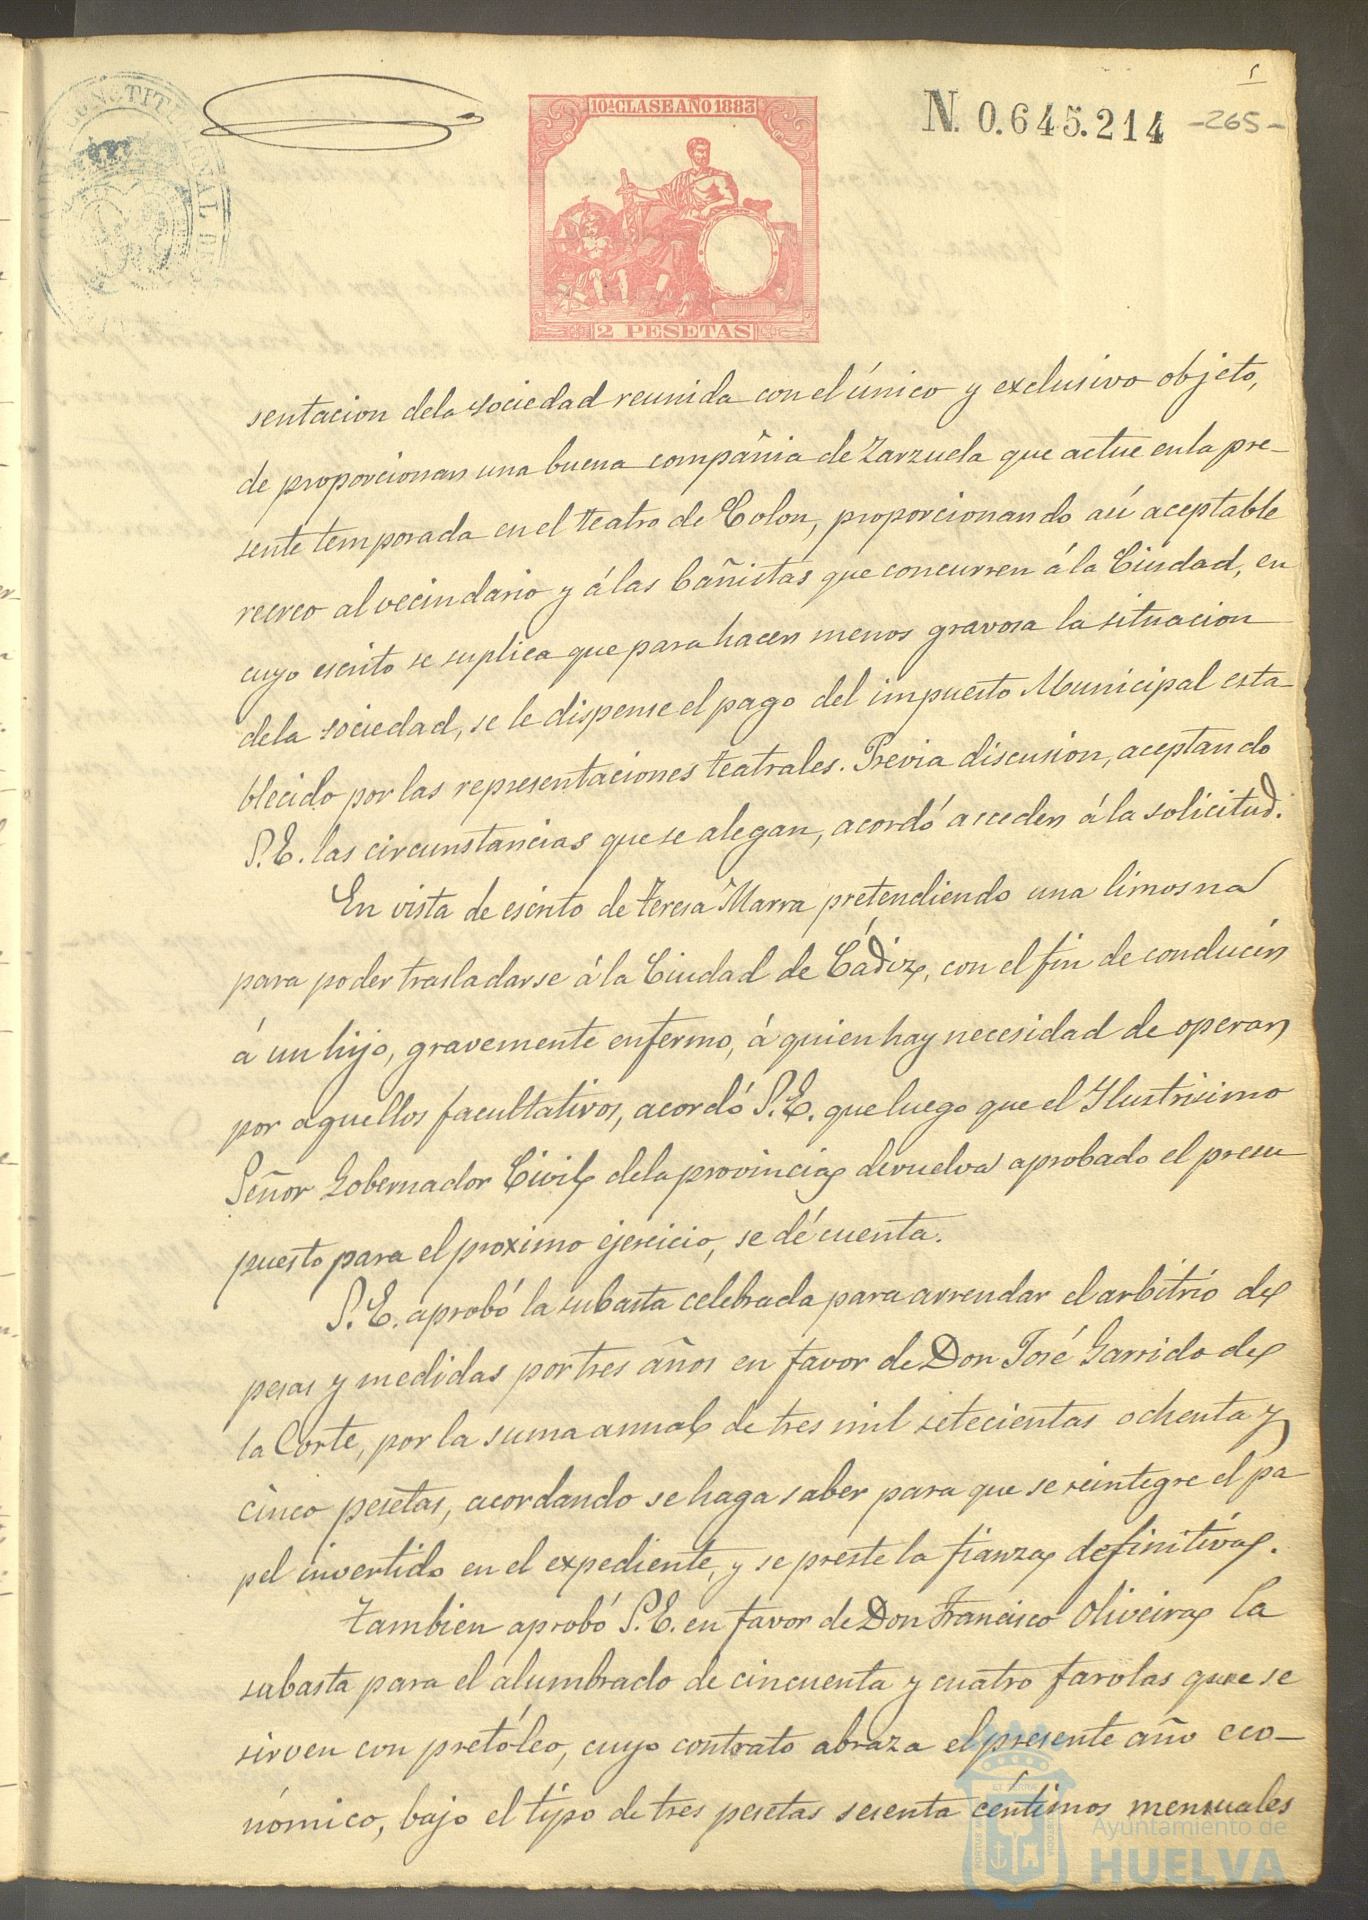 5
10ª CLASE AÑO 1883
N. 0.645.214
-265-
CONSTITUCIONAL DE
2 PESETAS
sentacion dela sociedad reunida con el único y exclusivo objeto,
de proporcionar una buena compañia de Zarzuela que actue en la pre-
sente temporada en el teatro de Colon, proporcionando así aceptable
recreo al vecindario y á las bañistas que concurren á la Ciudad, en
cuyo escrito se suplica que para hacer menos gravosa la situacion
dela sociedad, se le dispense el pago del impuesto Municipal esta-
blecido por las representaciones teatrales. Previa discusion, aceptando
S.E. las circunstancias que se alegan, acordó acceder á la solicitud.
En vista de escrito de Teresa Marra pretendiendo una limosna
para poder trasladarse á la Ciudad de Cádiz, con el fin de conducir
á un hijo, gravemente enfermo, á quien hay necesidad de operar
por aquellos facultativos, acordó S.E. que luego que el Ilustrisimo
Señor Gobernador Civil dela provincia devuelva aprobado el presu
puesto para el proximo ejercicio, se dé cuenta.
S.E. aprobó la subasta celebrada para arrendar el arbitrio de
pesas y medidas por tres años en favor de Don José Garrido de
la Corte, por la suma annal de tres mil setecientas ochenta y
cinco pesetas, acordando se haga saber para que se reintegre el pa
pel invertido en el expediente, y se preste la fianza definitiva.
Tambien aprobó S.E. en favor de Don Francisco Oliveira la
subasta para el alumbrado de cincuenta y cuatro farolas que se
sirven con pretóleo, cuyo contrato abraza el presente año eco-
nómico, bajo el tipo de tres pesetas sesenta céntimos mensuales
Ayuntamiento de
HUELVA